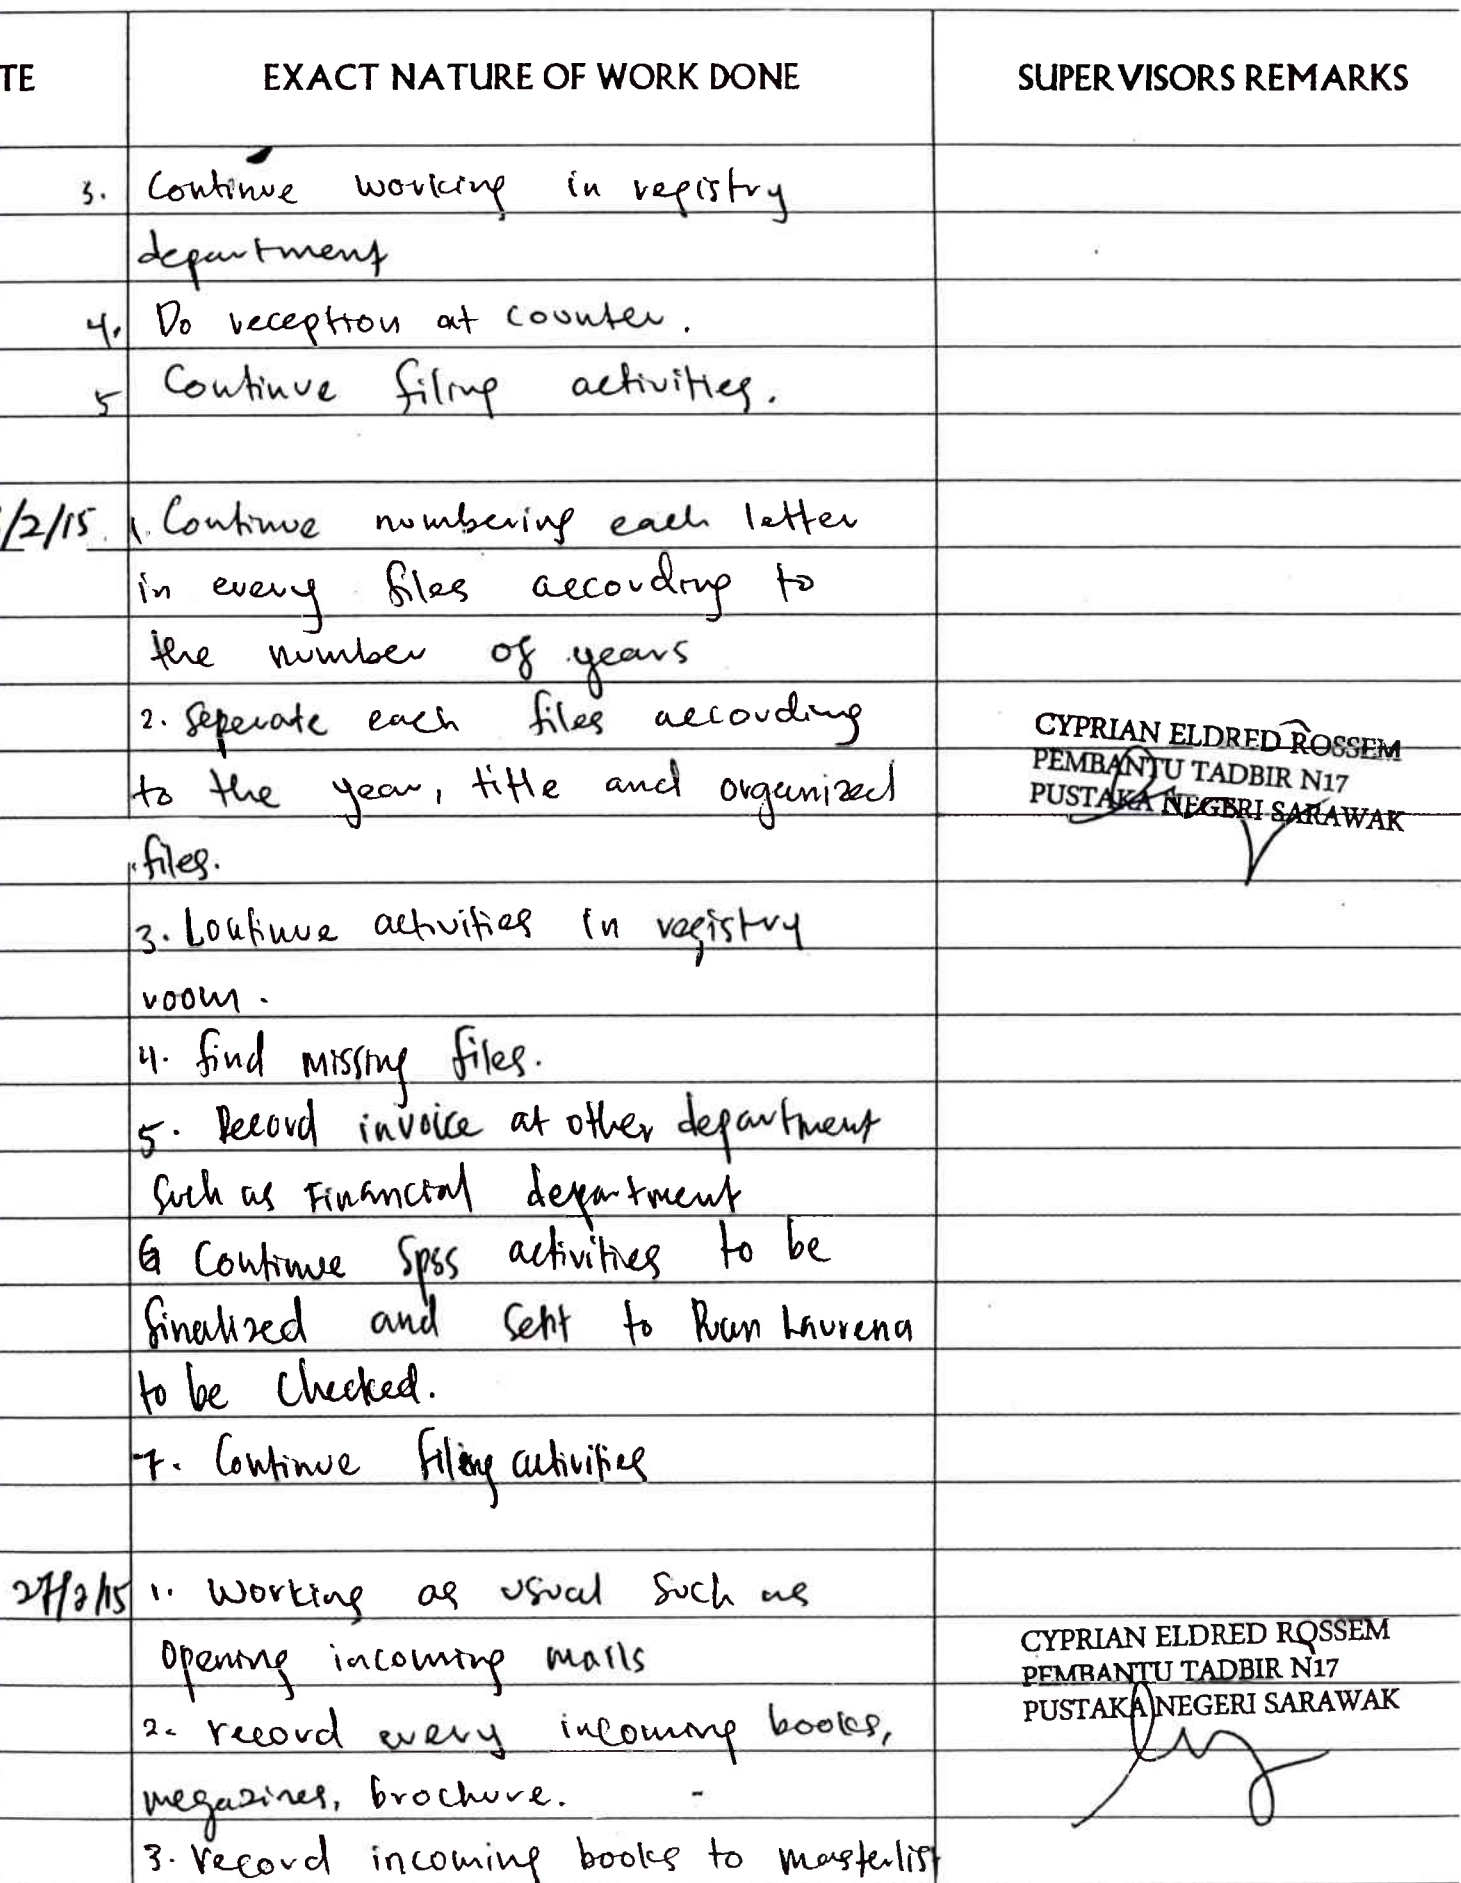 TE EXACT NATURE OF WORK DONE SUPERVISORS REMARKS
3. Continue working in registry
department
4. Do reception at counter.
5 Continue filing activities.
/2/15 1. Continue numbering each letter
in every files according to
the number of years
2. Seperate each files according
to the year, title and organized
files.
CYPRIAN ELDRED ROSSEM
PEMBANTU TADBIR N17
PUSTAKA NEGERI SARAWAK
3. Continue activities in registry
room.
4. find missing files.
5. Record invoice at other department
such as Financial department
6 Continue Spss activities to be
finalized and sent to Puan Laurena
to be checked.
7. Continue filing activities
27/2/15 1. Working as usual such as
opening incoming mails
2. record every incoming books,
megazines, brochure.
3. record incoming books to masterlist
CYPRIAN ELDRED ROSSEM
PEMBANTU TADBIR N17
PUSTAKA NEGERI SARAWAK